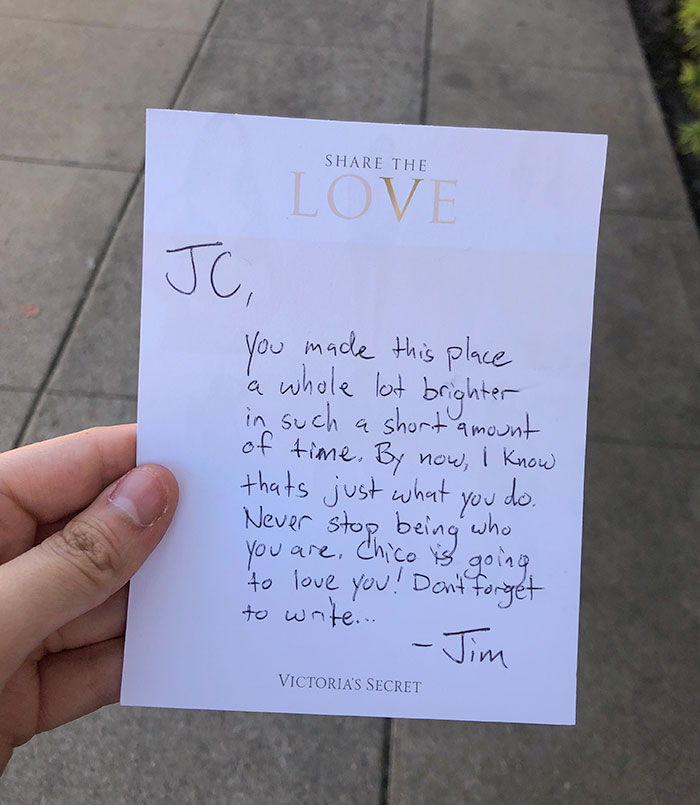 SHARE THE
LOVE
JC,
You made this place
a whole lot brighter
in such a short amount
of time. By now, I know
thats just what you do.
Never stop being who
you are. Chico is going
to love you! Don't forget
to write...
- Jim
VICTORIA'S SECRET